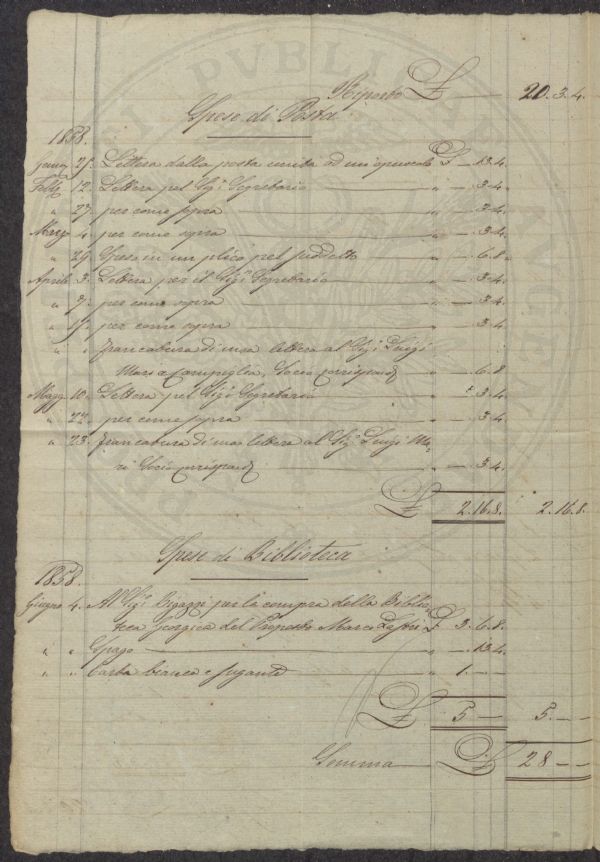 Riporto £ — 20. 3. 4.
Spese di Posta
1858.
Lettera dalla posta unita ad un opuscolo £ — 13. 4.
Febb. 12. Lettera pel Sig. Segretario — " — 3. 4.
" 27. per come sopra — " — 3. 4.
Marz. 4. per come sopra — " — 3. 4.
" 29. Speso in un plico pel suddetto — " — 6. 8.
Aprile 3. Lettera per il Sig. Segretario — " — 3. 4.
" 7. per come sopra — " — 3. 4.
" per come sopra — " — 3. 4.
" " francatura di una lettera al Sig. Luigi
Mari a Campiglia, Socio corrispond. — " — 6. 8
Magg. 10. Lettera pel Sig. Segretario — " — 3. 4.
" 22. per come sopra — " — 3. 4.
" 23. francatura di una lettera al Sig. Luigi Ma-
ri Socio corrispond. — " — 3. 4.
£ 2. 16. 8. 2. 16. 8.
Spese di Biblioteca
1858.
Giugno 4. Al Sig. Bigazzi per la compra della Biblio-
teca Georgica del Proposto Marco Lastri £ 3. 6. 8.
" " Spago — " — 13. 4.
" " Carta bianca e sugante — " 1. — —
£ 5 — 5. — —
Somma — £ 28 — —